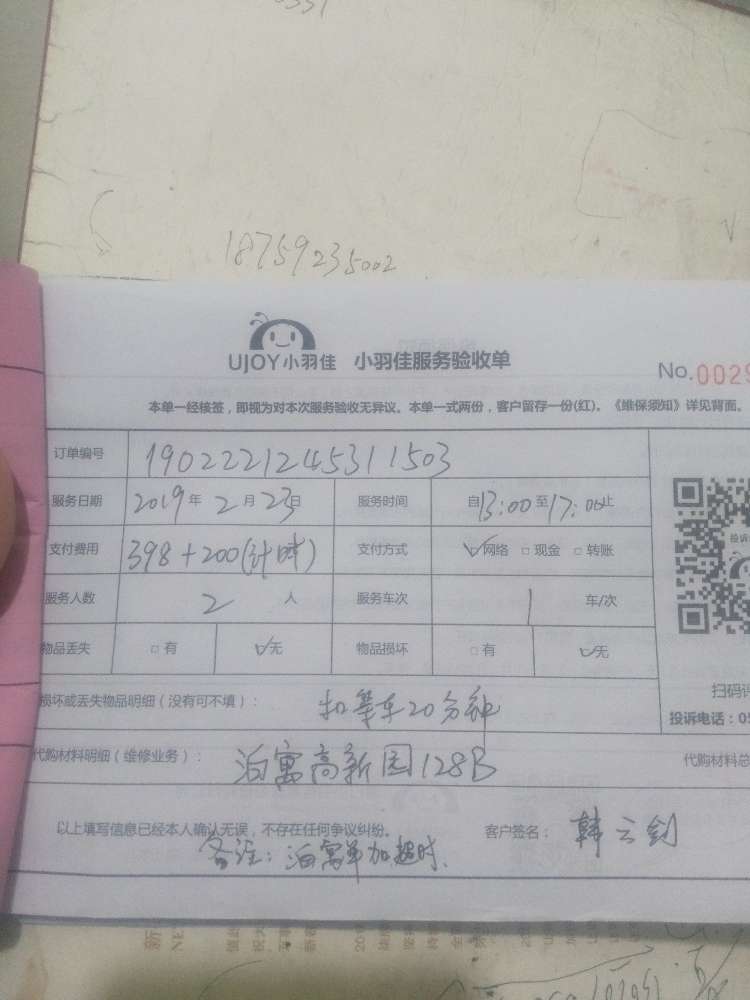 18759235002
UJOY小羽佳 小羽佳服务验收单
No.0029
本单一经核签，即视为对本次服务验收无异议。本单一式两份，客户留存一份(红)。《维保须知》详见背面。
订单编号 1902221245311503
服务日期 2019年2月23日 服务时间 自13:00至17:00止
支付费用 398+200(计时) 支付方式 ☑网络 □现金 □转账
服务人数 2人 服务车次 1 车/次
物品丢失 □有 ☑无 物品损坏 □有 ☑无
损坏或丢失物品明细（没有可不填）： 扣等车20分钟
扫码评
投诉电话：05
代购材料明细（维修业务）： 泊寓高新园128B 代购材料总
以上填写信息已经本人确认无误，不存在任何争议纠纷。 客户签名： 韩云剑
备注：泊寓单加超时.